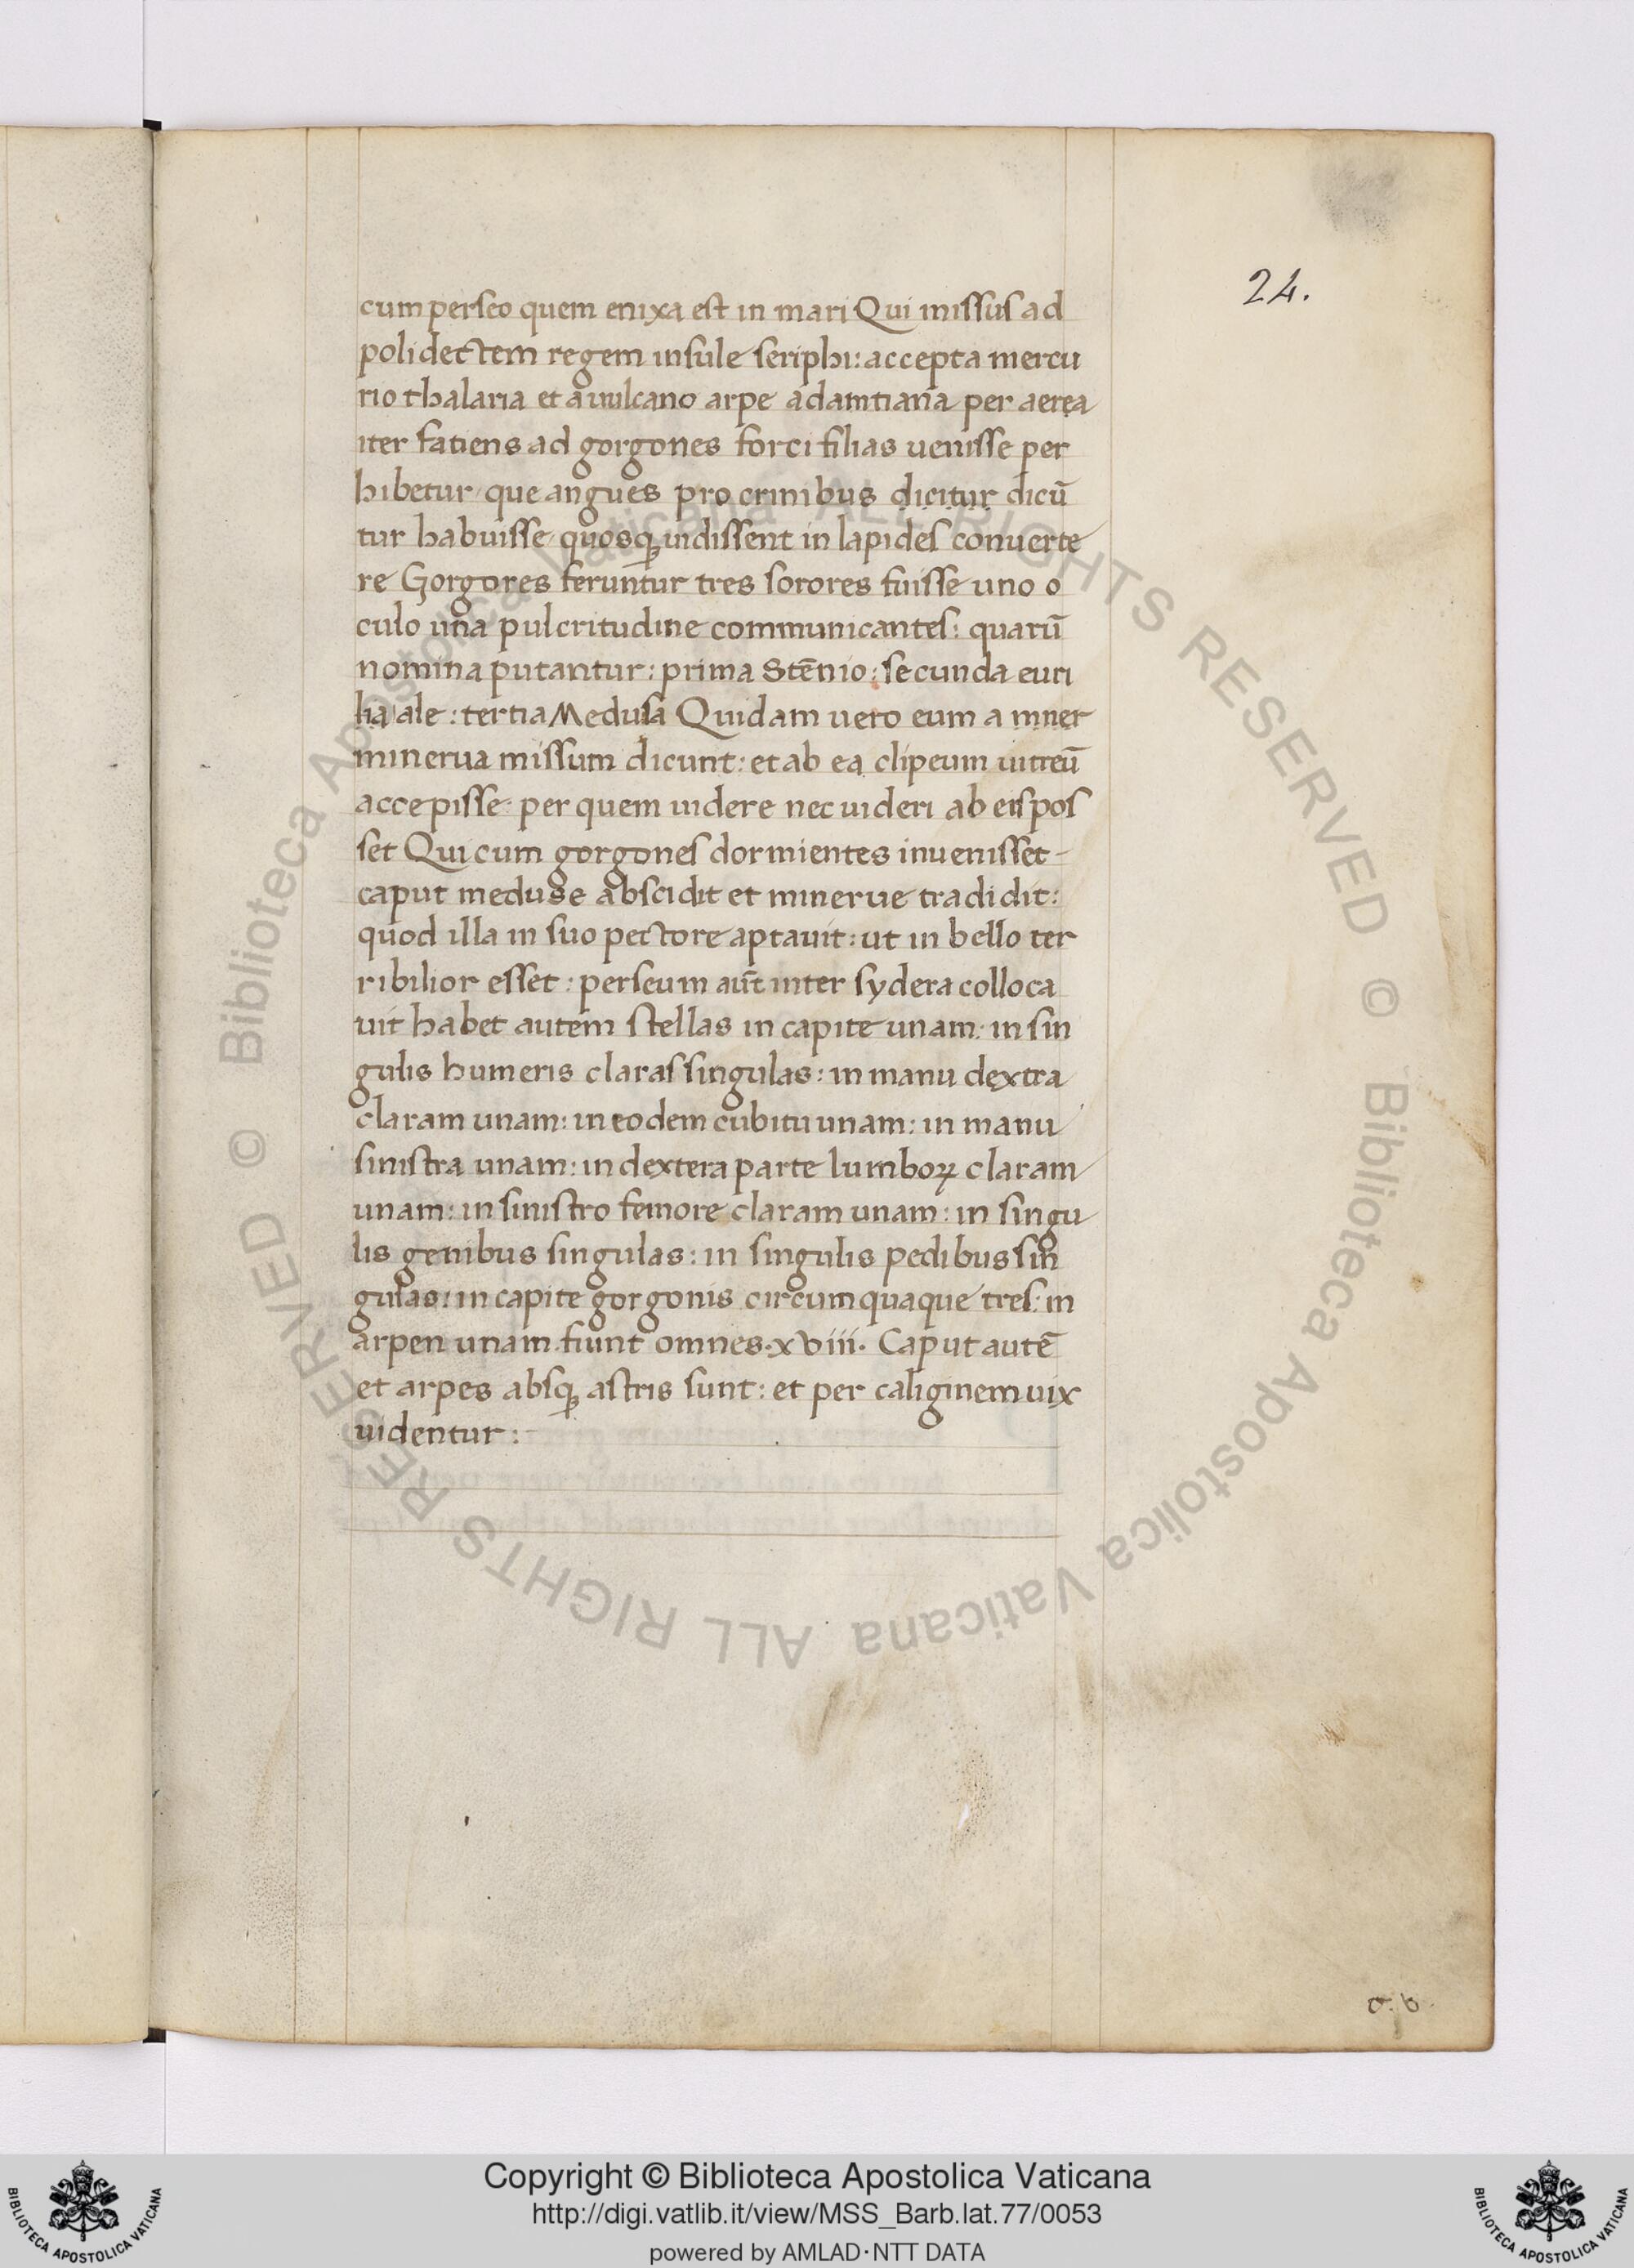 24.
cum perseo quem enixa est in mari Qui missus ad
polidectem regem insule seriphi: accepta mercu
rio thalaria et a uulcano arpe adamtiana per aerea
iter fatiens ad gorgones forci filias uenisse per
hibetur que angues pro crinibus dicitur dicū
tur habuisse quosqꝫ uidissent in lapides conuerte
re Gorgores feruntur tres sorores fuisse uno o
culo una pulcritudine communicantes: quarū
nomina putantur: prima Stēnio: secunda euri
hale: tertia Medusa Quidam uero eum a mner
minerua missum dicunt: et ab ea clipeum uitreū
accepisse: per quem uidere nec uideri ab eis pos
set Qui cum gorgones dormientes inuenisset-
caput meduse abscidit et minerue tradidit:
quod illa in suo pectore aptauit: ut in bello ter
ribilior esset: perseum aūt inter sydera colloca
uit habet autem stellas in capite unam: in sin
gulis humeris claras singulas: in manu dextra
claram unam: in eodem cubitu unam: in manu
sinistra unam: in dextera parte lumboꝝ claram
unam: in sinistro femore claram unam: in singu
lis genibus singulas: in singulis pedibus sin
gulas: in capite gorgonis circumquaque tres: in
arpen unam. fiunt omnes. xviii. Caput autē
et arpes absqꝫ astris sunt: et per caliginem uix
uidentur:
© Biblioteca Apostolica Vaticana ALL RIGHTS RESERVED
© Biblioteca Apostolica Vaticana ALL RIGHTS RESERVED
Copyright © Biblioteca Apostolica Vaticana
http://digi.vatlib.it/view/MSS_Barb.lat.77/0053
powered by AMLAD·NTT DATA
BIBLIOTECA APOSTOLICA VATICANA
BIBLIOTECA APOSTOLICA VATICANA